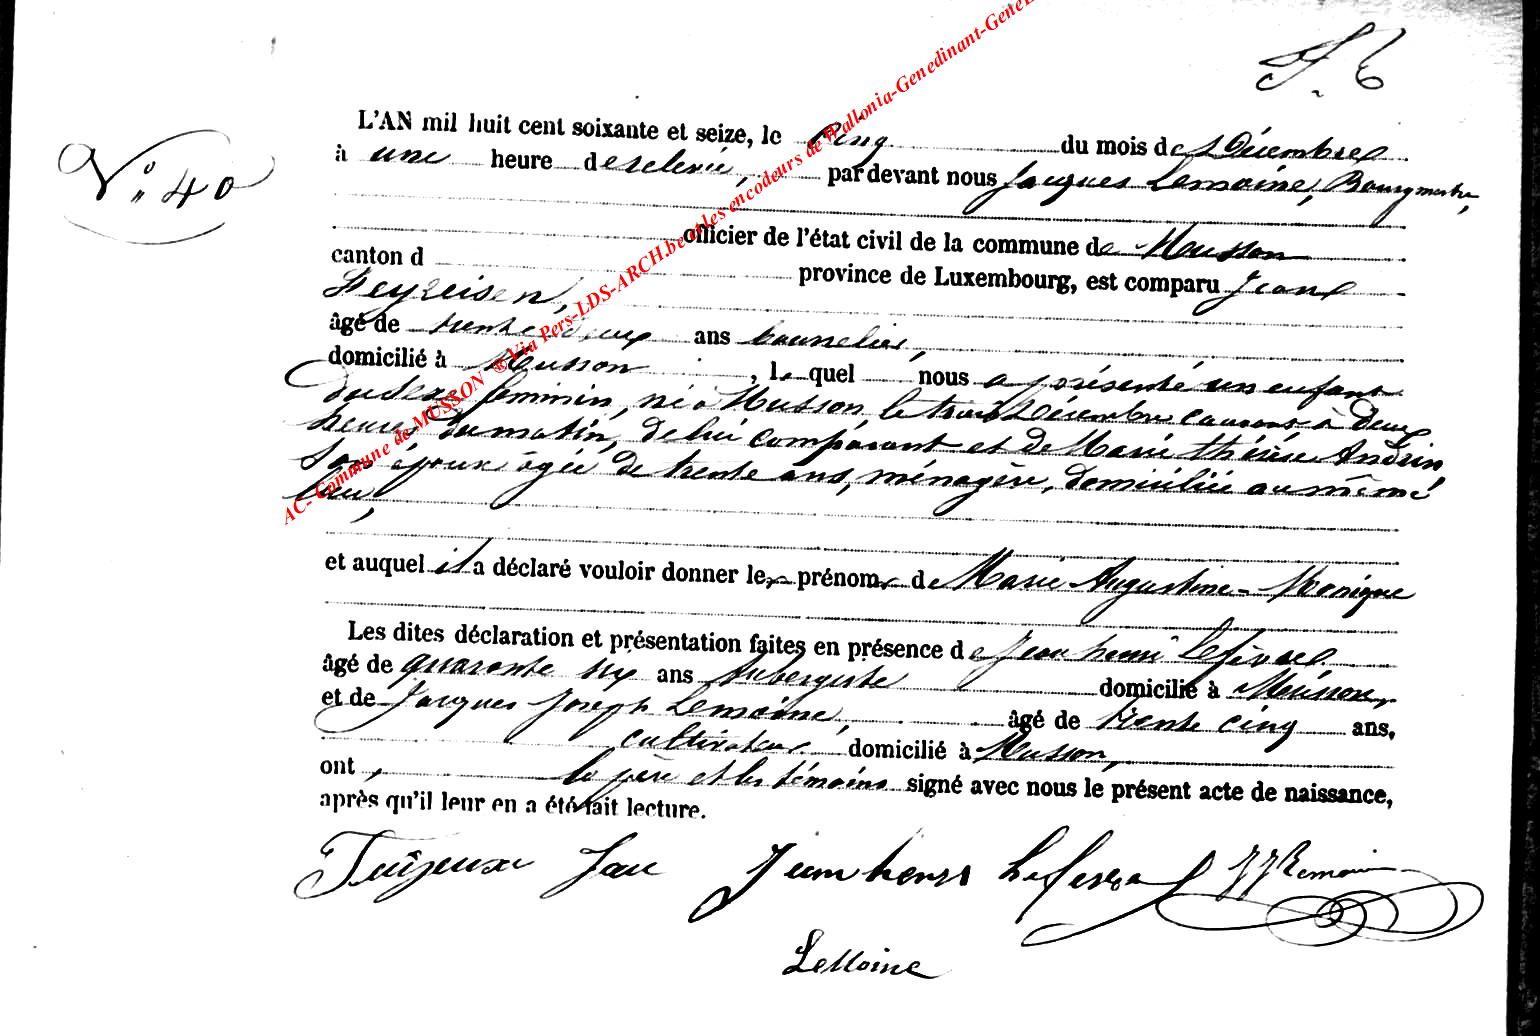 N° 40
L'AN mil huit cent soixante et seize, le cinq du mois de Décembre
à une heure de relevée, par devant nous Jacques Lemoine, Bourgmestre,
officier de l'état civil de la commune de Musson
canton d province de Luxembourg, est comparu Jean
Feyreisen,
âgé de trente deux ans tonnelier,
domicilié à Musson, lequel nous a présenté un enfant
du sexe féminin, né à Musson, le trois Décembre courant, à deux
heures du matin, de lui comparant et de Marie Thérèse Andrin
son épouse âgée de trente ans, ménagère, domiciliée au même
lieu,
et auquel il a déclaré vouloir donner les prénoms de Marie Augustine-Monique
Les dites déclaration et présentation faites en présence de Jean henri Lefèvre
âgé de quarante six ans Aubergiste domicilié à Musson,
et de Jacques Joseph Lemoine, âgé de trente cinq ans,
cultivateur domicilié à Musson,
ont, le père et les témoins signé avec nous le présent acte de naissance,
après qu'il leur en a été fait lecture.
Jean henri J J Lemoine
Lemoine
AC- Commune de MUSSON ®Via Pers-LDS-ARCH.be et les encodeurs de Wallonia-Genedinant-Gene